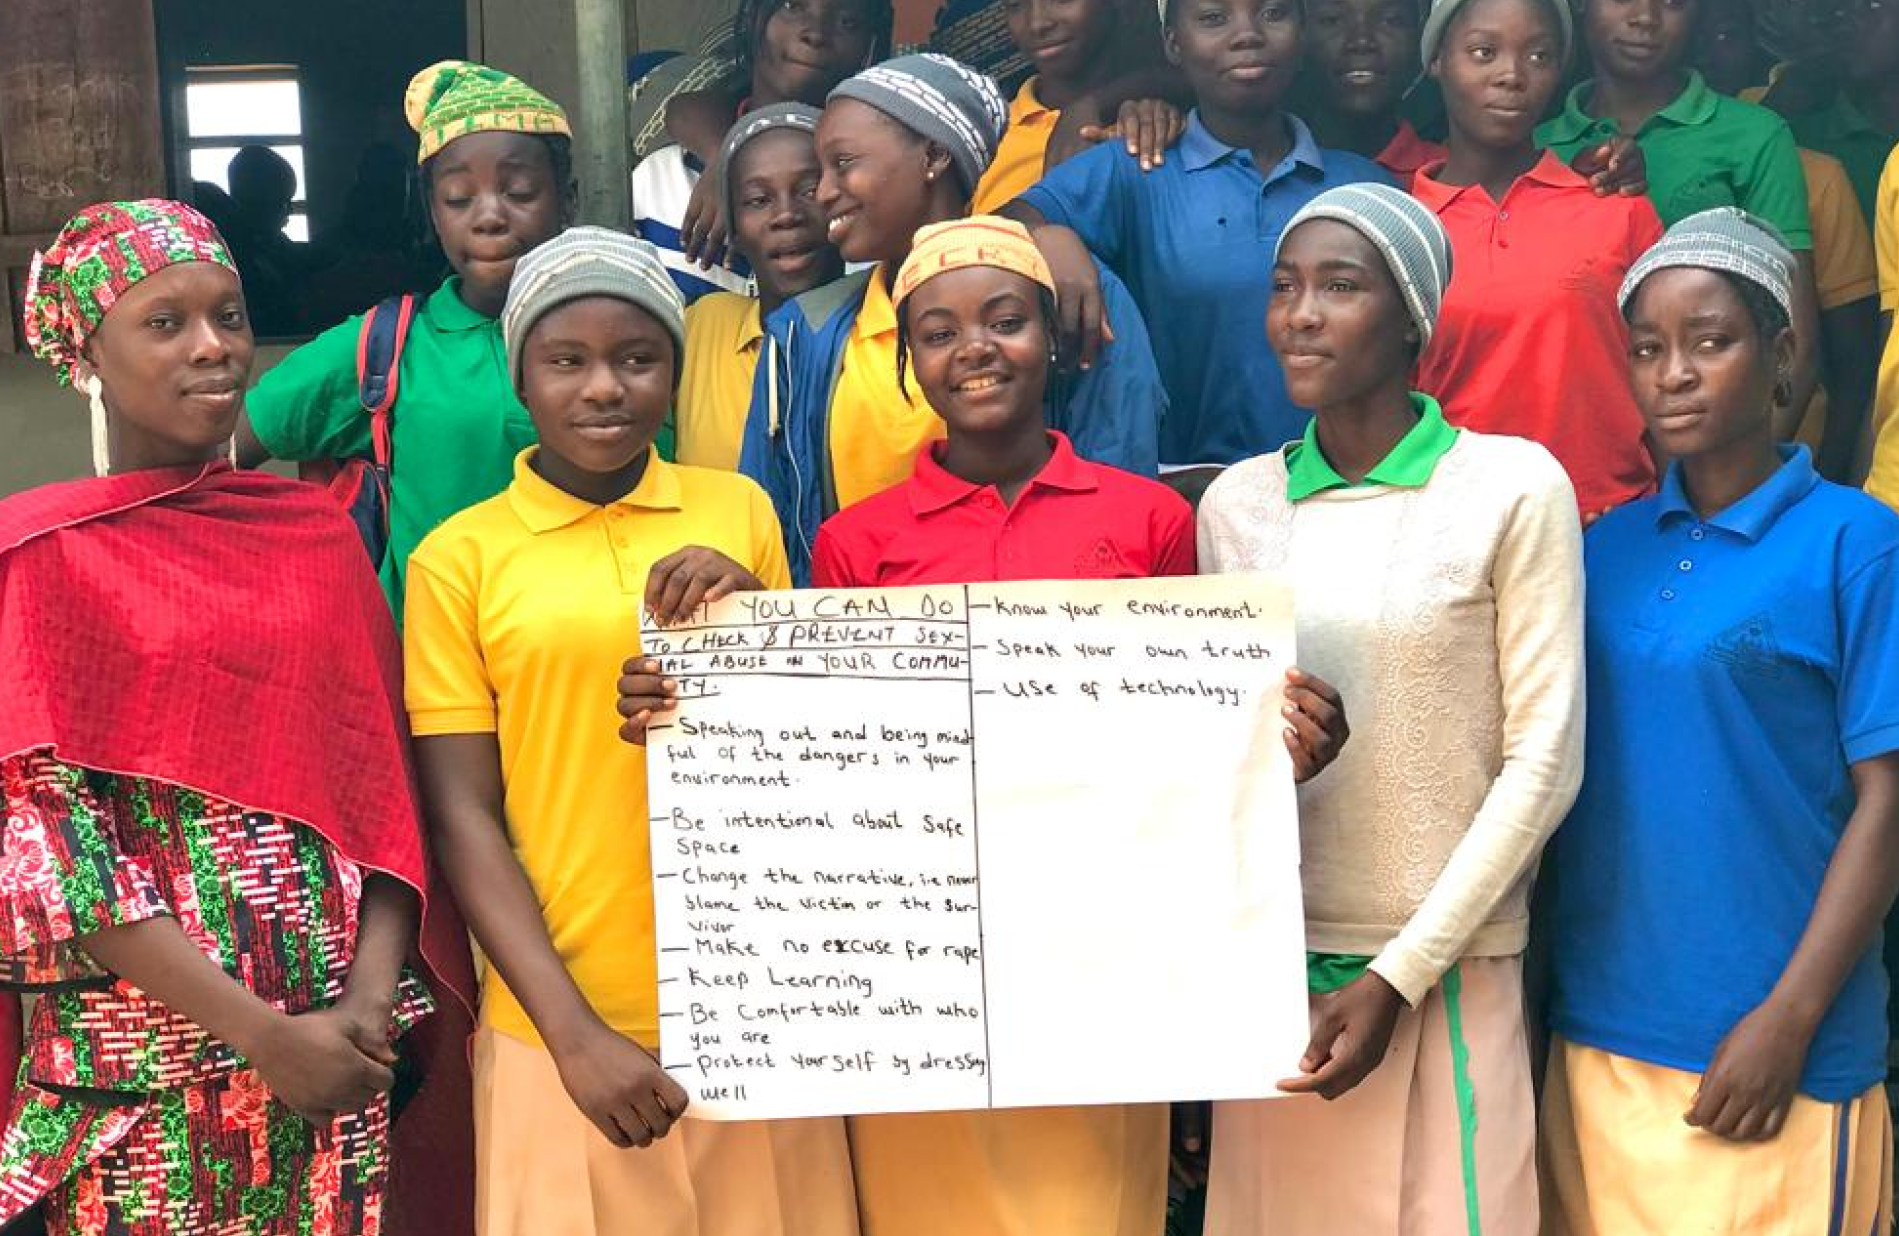 YOU CAN DO
TO CHECK & PREVENT SEX-
UAL ABUSE IN YOUR COMMU-
TY.
- Speaking out and being mind
ful of the dangers in your
environment.
- Be intentional about Safe
Space
- Change the narrative, i.e never
blame the victim or the Sur-
vivor
- Make no excuse for rape
- Keep Learning
- Be Comfortable with who
you are
- Protect yourself by dressing
well
- Know your environment.
- Speak your own truth
- Use of technology.